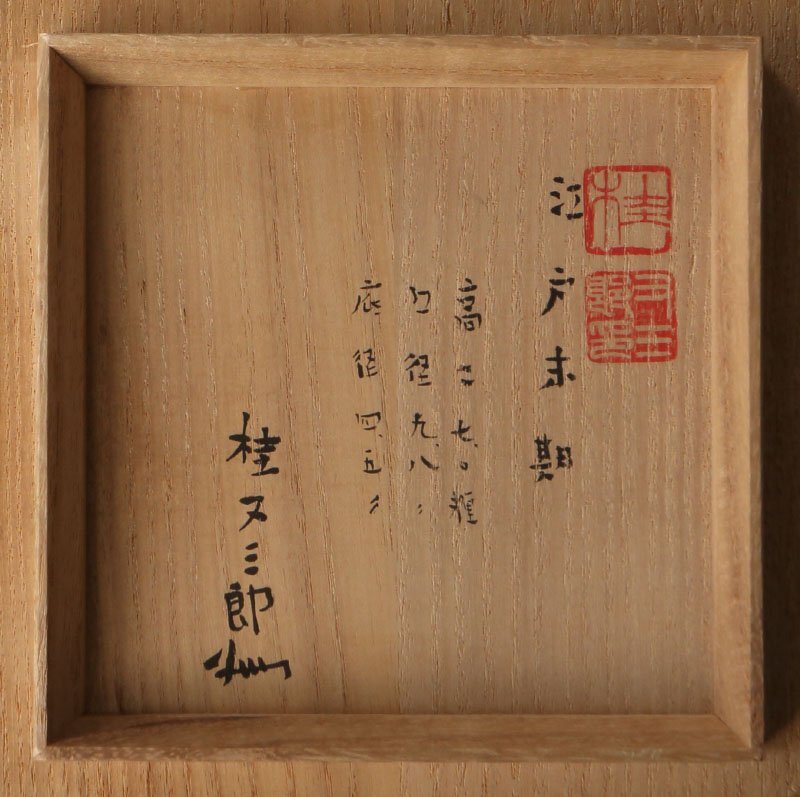 江戸末期
高二七.〇糎
口径九.八〃
底径四.五〃
桂又三郎
桂
又三郎印